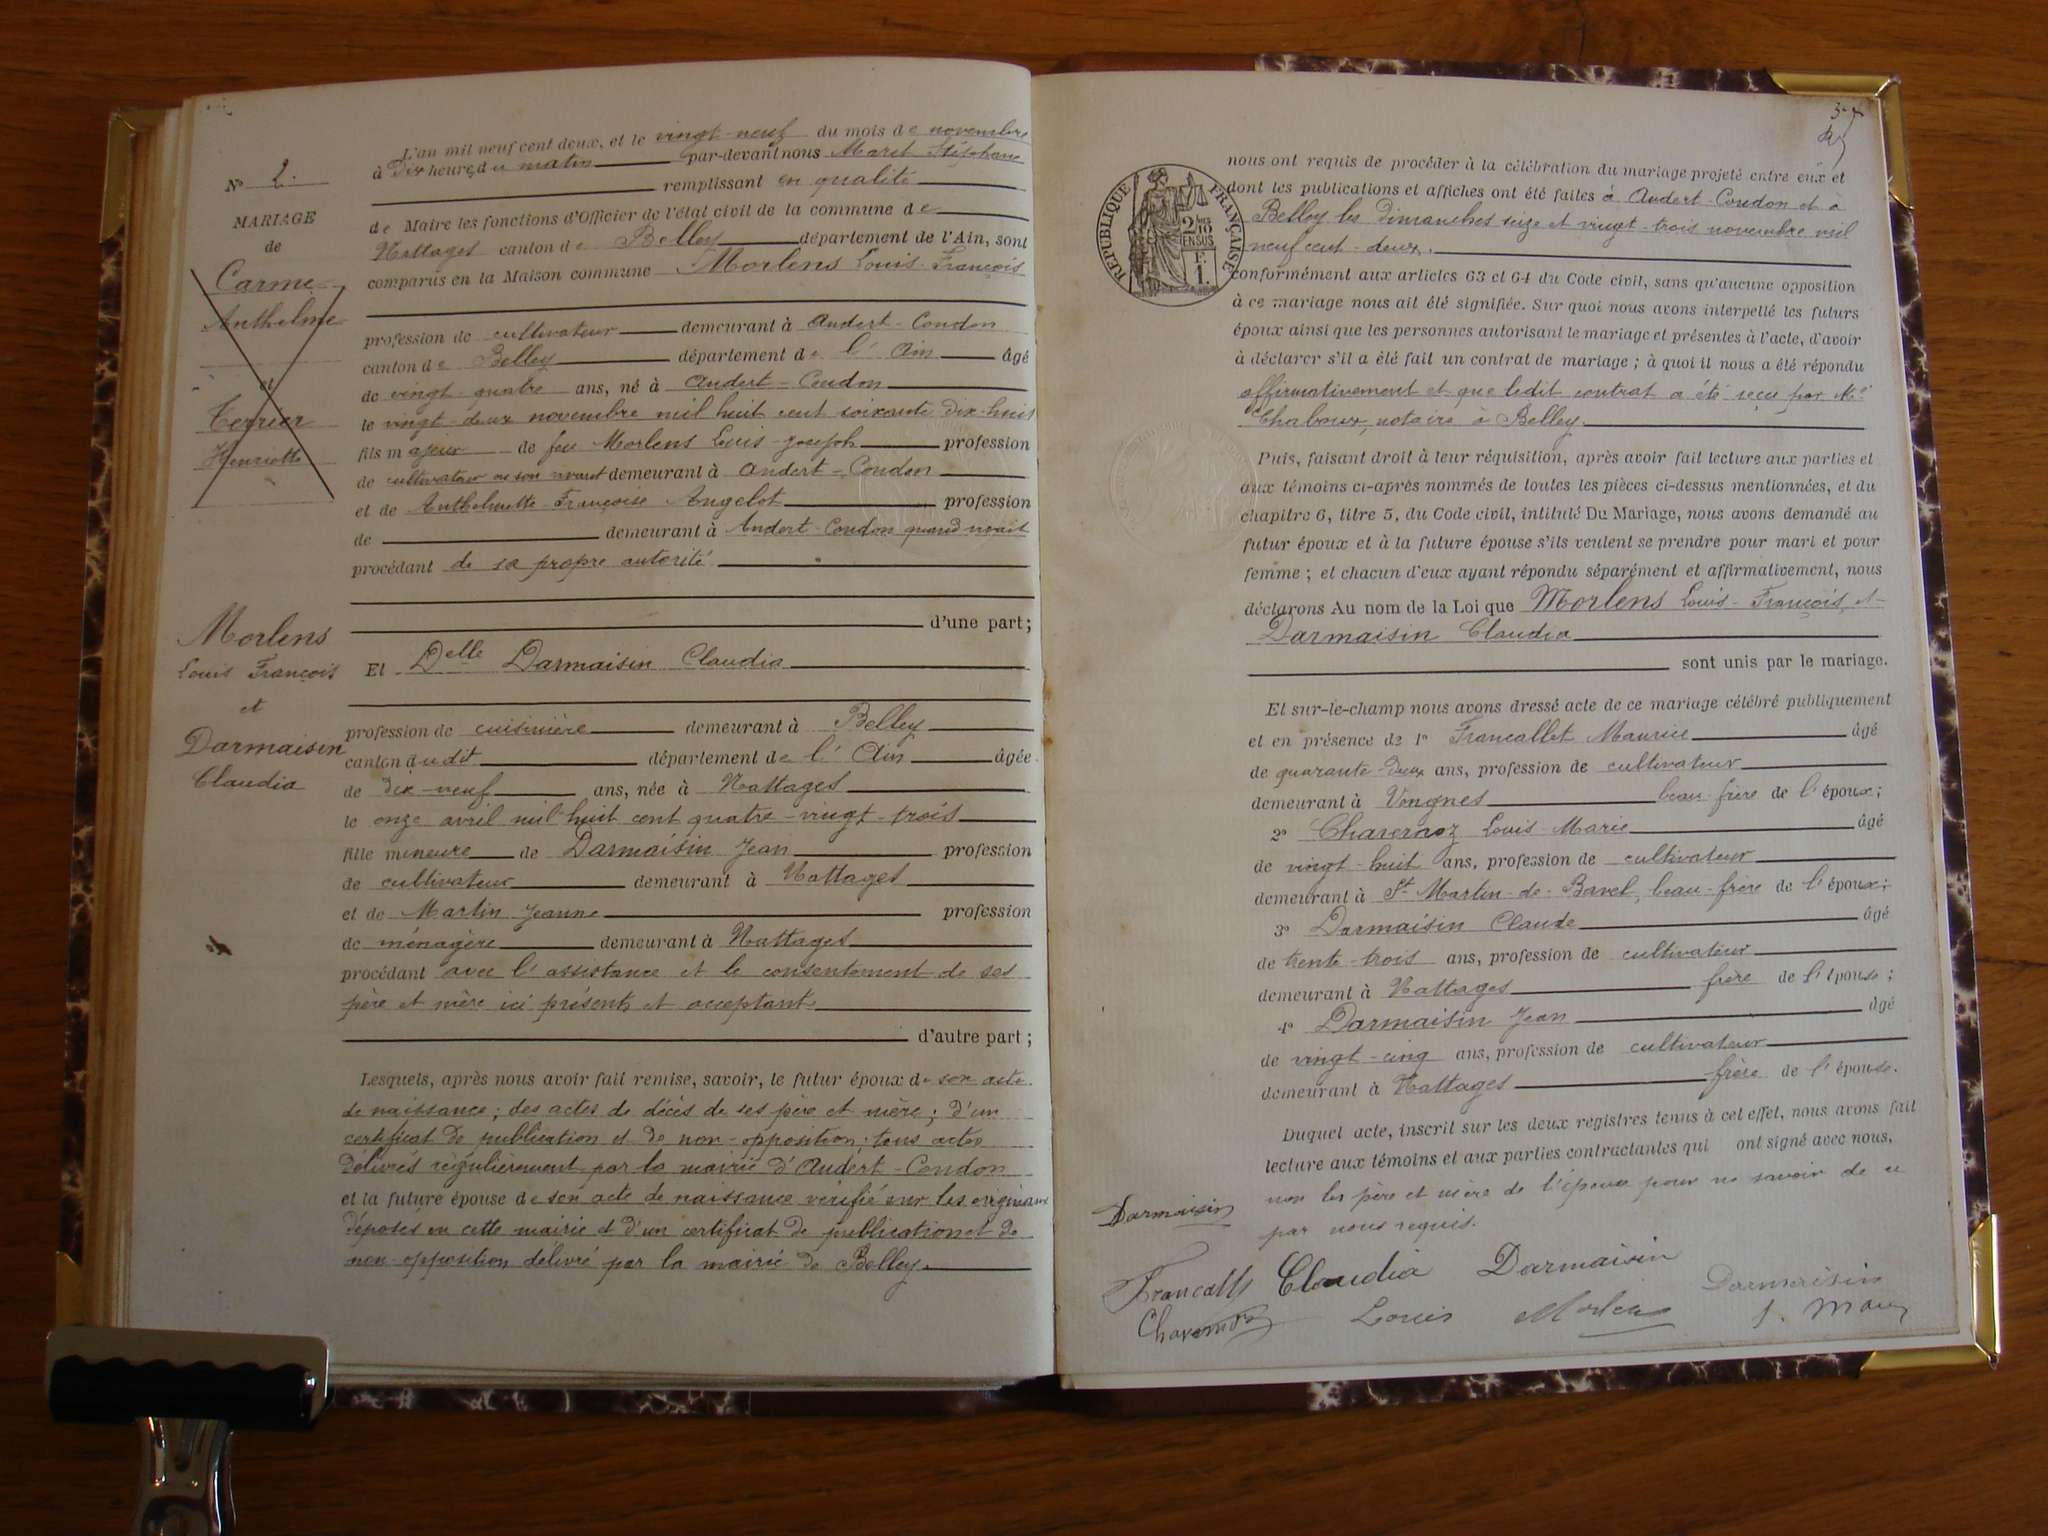 N° 2.
MARIAGE
de
Carme
Anthelme
et
Terrier
Henriette
Morlens
Louis François
et
Darmaisin
Claudia
L'an mil neuf cent deux, et le vingt-neuf du mois de novembre
à Dix heures du matin par-devant nous Maret Stéphane
remplissant en qualité
de Maire les fonctions d'Officier de l'état civil de la commune de
Nattages canton de Belley département de l'Ain, sont
comparus en la Maison commune Morlens Louis-François
profession de cultivateur demeurant à Andert-Condon
canton de Belley département de l'Ain âgé
de vingt-quatre ans, né à Andert-Condon
le vingt-deux novembre mil huit cent soixante dix-huit
fils majeur de feu Morlens Louis-Joseph profession
de cultivateur en son vivant demeurant à Andert-Condon
et de Anthelmette-Françoise Angelot profession
de demeurant à Andert-Condon quand vivait
procédant de sa propre autorité
d'une part;
Et Delle Darmaisin Claudia
profession de cuisinière demeurant à Belley
canton dudit département de l'Ain âgée
de dix-neuf ans, née à Nattages
le onze avril mil huit cent quatre-vingt-trois
fille mineure de Darmaisin Jean profession
de cultivateur demeurant à Nattages
et de Martin Jeanne profession
de ménagère demeurant à Nattages
procédant avec l'assistance et le consentement de ses
père et mère ici présents et acceptant
d'autre part;
Lesquels, après nous avoir fait remise, savoir, le futur époux de son acte
de naissance; des actes de décès de ses père et mère; d'un
certificat de publication et de non-opposition; tous actes
délivrés régulièrement par la mairie d'Andert-Condon
et la future épouse de son acte de naissance vérifié sur les originaux
déposés en cette mairie et d'un certificat de publication et de
non-opposition délivré par la mairie de Belley.
REPUBLIQUE FRANÇAISE
2/10 EN SUS
1 F.
nous ont requis de procéder à la célébration du mariage projeté entre eux et
dont les publications et affiches ont été faites à Andert-Condon et à
Belley les dimanches seize et vingt-trois novembre mil
neuf cent-deux.
conformément aux articles 63 et 64 du Code civil, sans qu'aucune opposition
à ce mariage nous ait été signifiée. Sur quoi nous avons interpellé les futurs
époux ainsi que les personnes autorisant le mariage et présentes à l'acte, d'avoir
à déclarer s'il a été fait un contrat de mariage; à quoi il nous a été répondu
affirmativement et que ledit contrat a été reçu par Me
Chaboux, notaire à Belley.
Puis, faisant droit à leur réquisition, après avoir fait lecture aux parties et
aux témoins ci-après nommés de toutes les pièces ci-dessus mentionnées, et du
chapitre 6, titre 5, du Code civil, intitulé Du Mariage, nous avons demandé au
futur époux et à la future épouse s'ils veulent se prendre pour mari et pour
femme; et chacun d'eux ayant répondu séparément et affirmativement, nous
déclarons Au nom de la Loi que Morlens Louis-François et
Darmaisin Claudia
sont unis par le mariage.
Et sur-le-champ nous avons dressé acte de ce mariage célébré publiquement
et en présence de 1° Francallet Maurice âgé
de quarante-deux ans, profession de cultivateur
demeurant à Vongnes beau-frère de l'époux;
2° Chavernoz Louis-Marie âgé
de vingt-huit ans, profession de cultivateur
demeurant à St Martin-de-Bavel, beau-frère de l'époux;
3° Darmaisin Claude âgé
de trente-trois ans, profession de cultivateur
demeurant à Nattages frère de l'épouse;
4° Darmaisin Jean âgé
de vingt-cinq ans, profession de cultivateur
demeurant à Nattages frère de l'épouse.
Duquel acte, inscrit sur les deux registres tenus à cet effet, nous avons fait
lecture aux témoins et aux parties contractantes qui ont signé avec nous,
non les père et mère de l'épouse pour ne savoir de ce
par nous requis.
Darmaisin
Claudia Darmaisin
Darmaisin
Louis Morlens